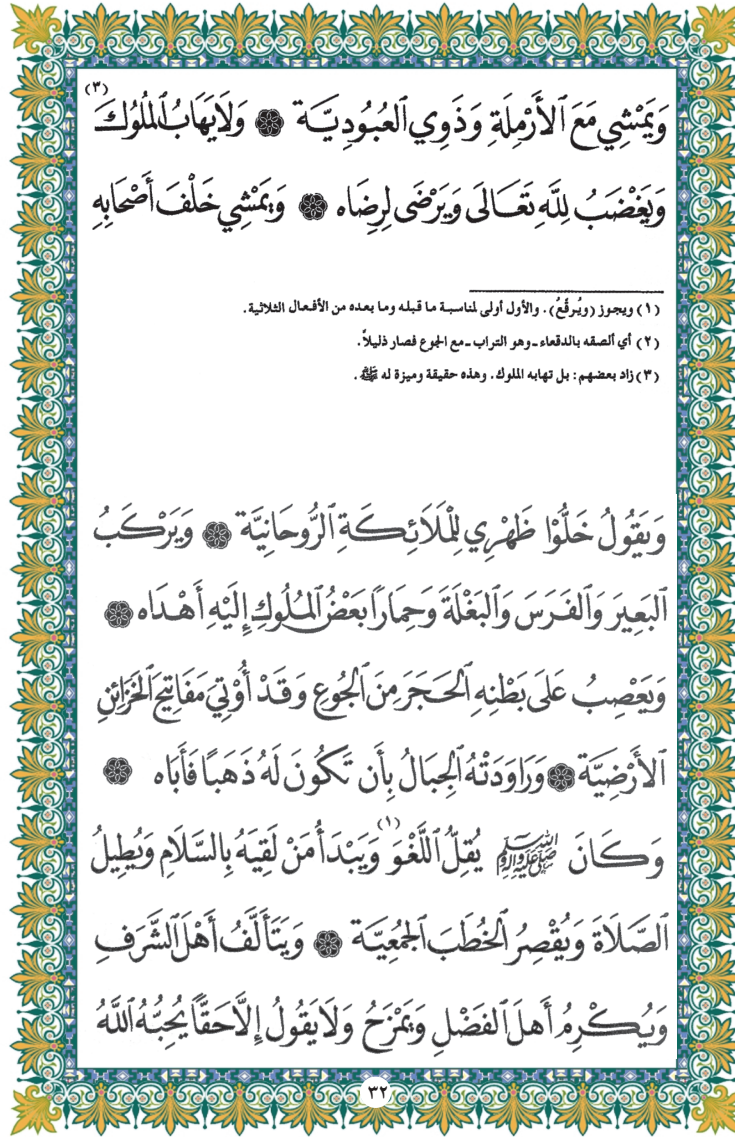 وَيَمْشِي مَعَ ٱلْأَرْمِلَةِ وَذَوِي ٱلْعُبُودِيَّة ۞ وَلَا يَهَابُ ٱلْمُلُوكَ (٣)
وَيَغْضَبُ لِلَّهِ تَعَالَى وَيَرْضَى لِرِضَاه ۞ وَيَمْشِي خَلْفَ أَصْحَابِهِ
(١) ويجوز (ويُرقِّعُ). والأول أولى لمناسبة ما قبله وما بعده من الأفعال الثلاثية.
(٢) أي ألصقه بالدقعاء ـ وهو التراب ـ مع الجوع فصار ذليلاً.
(٣) زاد بعضهم: بل تهابه الملوك. وهذه حقيقة وميزة له ﷺ.
وَيَقُولُ خَلُّوْا ظَهْرِي لِلْمَلَائِكَةِ ٱلرُّوحَانِيَّة ۞ وَيَرْكَبُ
ٱلْبَعِيرَ وَٱلْفَرَسَ وَٱلْبَغْلَةَ وَحِمَارًا بَعْضُ ٱلْمُلُوكِ إِلَيْهِ أَهْدَاه ۞
وَيَعْصِبُ عَلَى بَطْنِهِ ٱلْحَجَرَ مِنَ ٱلْجُوعِ وَقَدْ أُوْتِيَ مَفَاتِيحَ ٱلْخَزَائِنِ
ٱلْأَرْضِيَّة ۞ وَرَاوَدَتْهُ ٱلْجِبَالُ بِأَن تَكُونَ لَهُ ذَهَبًا فَأَبَاه ۞
وَكَانَ ﷺ يُقِلُّ ٱللَّغْوَ (١) وَيَبْدَأُ مَنْ لَقِيَهُ بِالسَّلَامِ وَيُطِيلُ
ٱلصَّلَاةَ وَيُقْصِرُ ٱلْخُطَبَ ٱلْجُمُعِيَّة ۞ وَيَتَأَلَّفُ أَهْلَ ٱلشَّرَفِ
وَيُكْرِمُ أَهلَ ٱلْفَضْلِ وَيَمْزَحُ وَلَا يَقُولُ إِلَّا حَقًّا يُحِبُّهُ ٱللَّهُ
٣٢